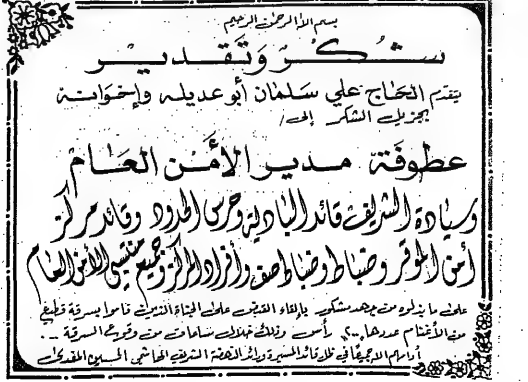 بسم الله الرحمن الرحيم
شكر وتقدير
يتقدم الحاج علي سلمان أبو عديله وإخوانه
بجزيل الشكر إلى/
عطوفة مدير الأمن العام
وسيادة الشريف قائد البادية وحرس الحدود وقائد مركز
أمن الموقر وضباط وضباط صف وأفراد المركز وجميع منتسبي الأمن العام
على ما بذلوه من جهد مشكور بإلقاء القبض على الجناة الذين قاموا بسرقة قطيع
من الأغنام عددها ٢٠٠ رأس وذلك خلال ساعات من وقوع السرقة ..
أدامهم الله جميعًا في ظل قائد المسيرة ورائد النهضة الشريف الهاشمي الحسين المفدى